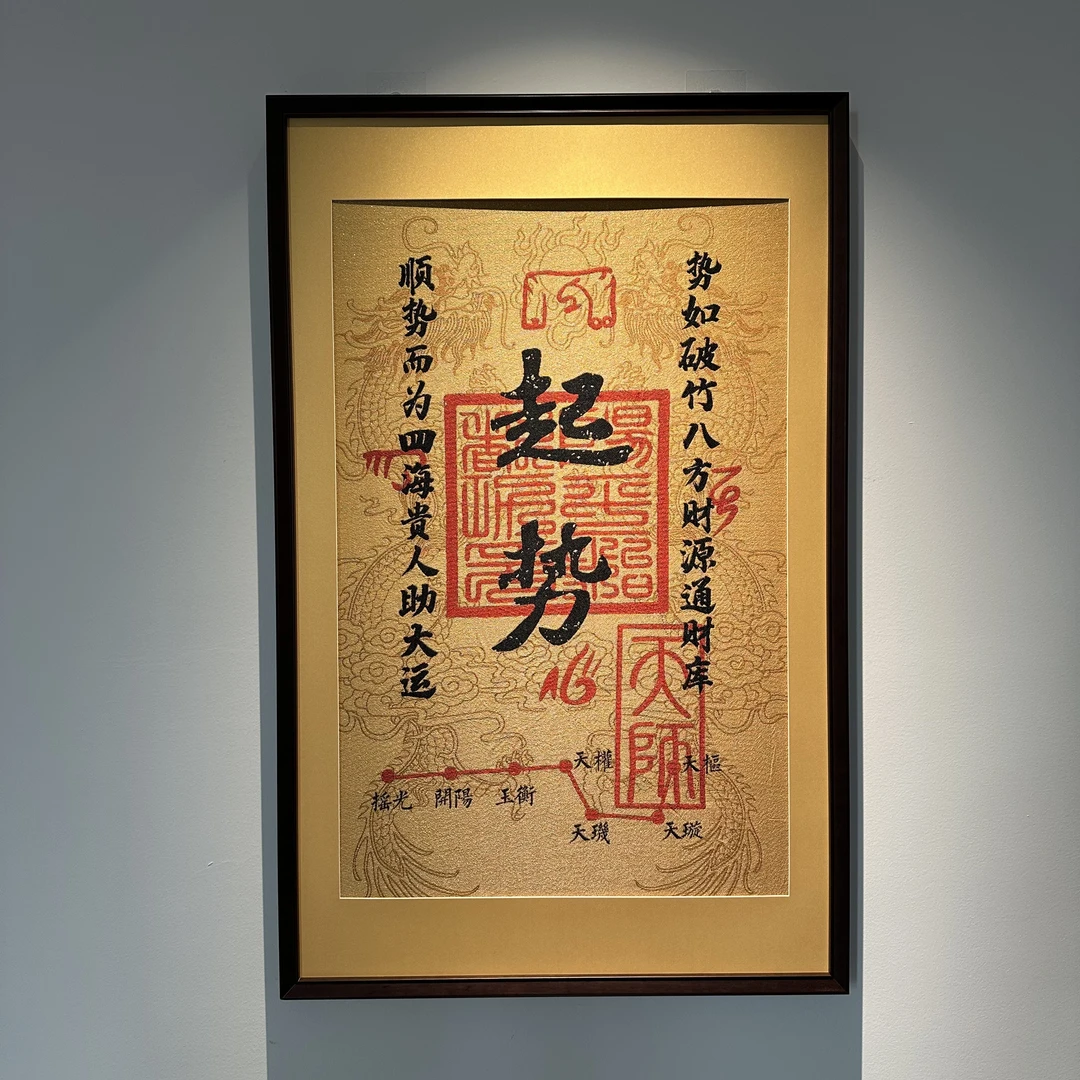 势如破竹八方财源通财库
起势
顺势而为四海贵人助大运
陽平治都功印
天師
天樞
天權
玉衡
開陽
摇光
天璣
天璇